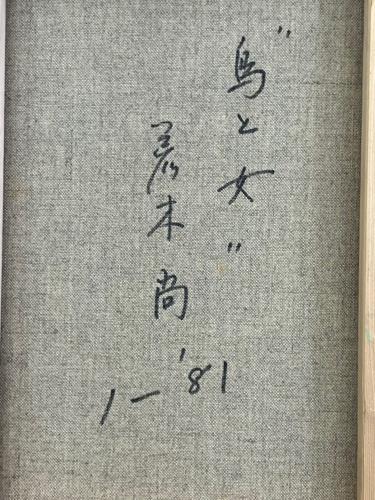 "鳥と女"
荒木尚
'81
1-